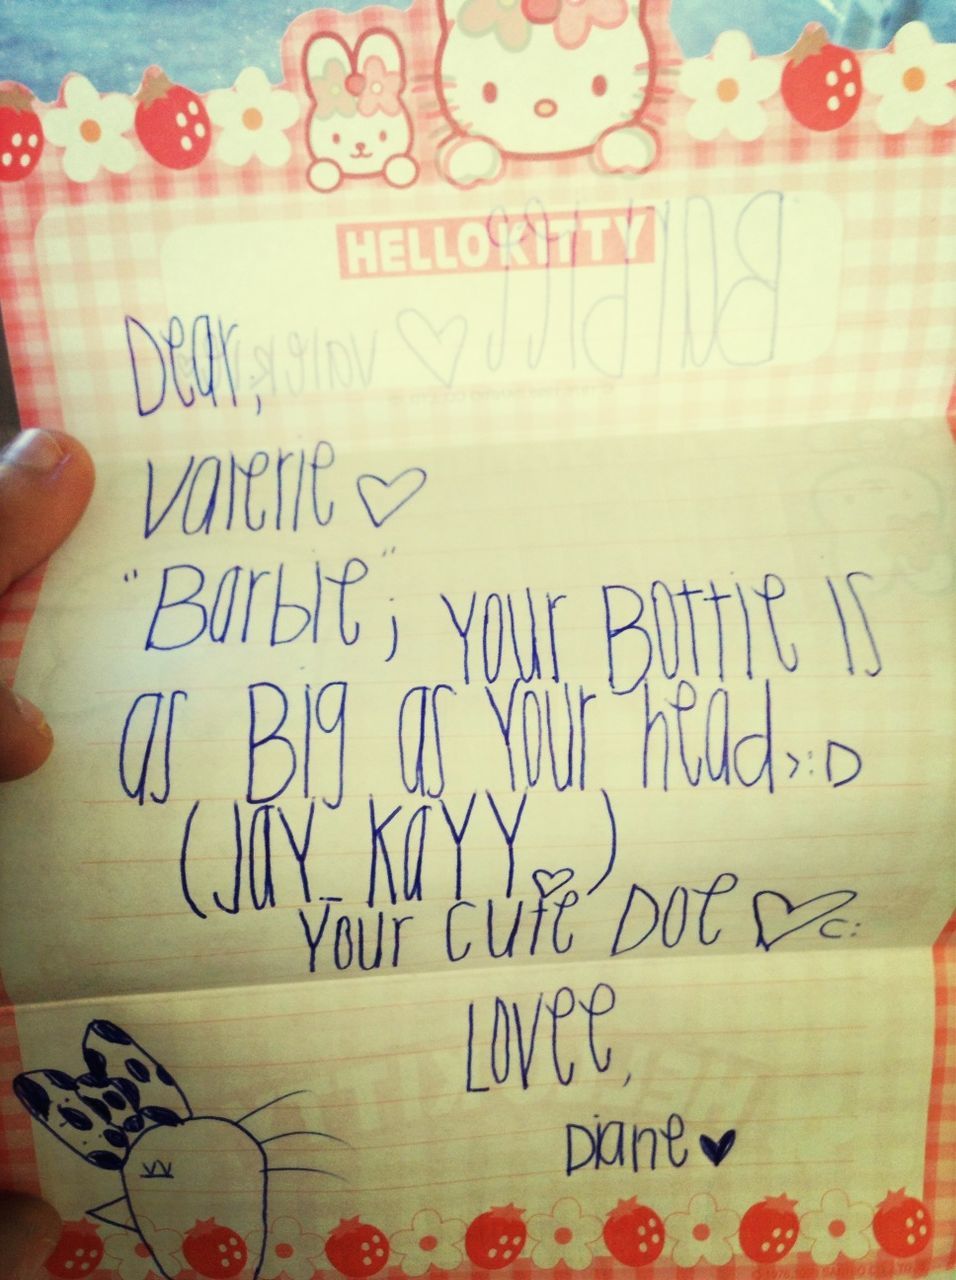 HELLO KITTY
Dear,
Valerie ♡
"Barbie"; Your Bottle is
as Big as Your head >:D
(Jay Kayy ♡)
Your cute Doe ♡ c:
Lovee,
Diane ♥